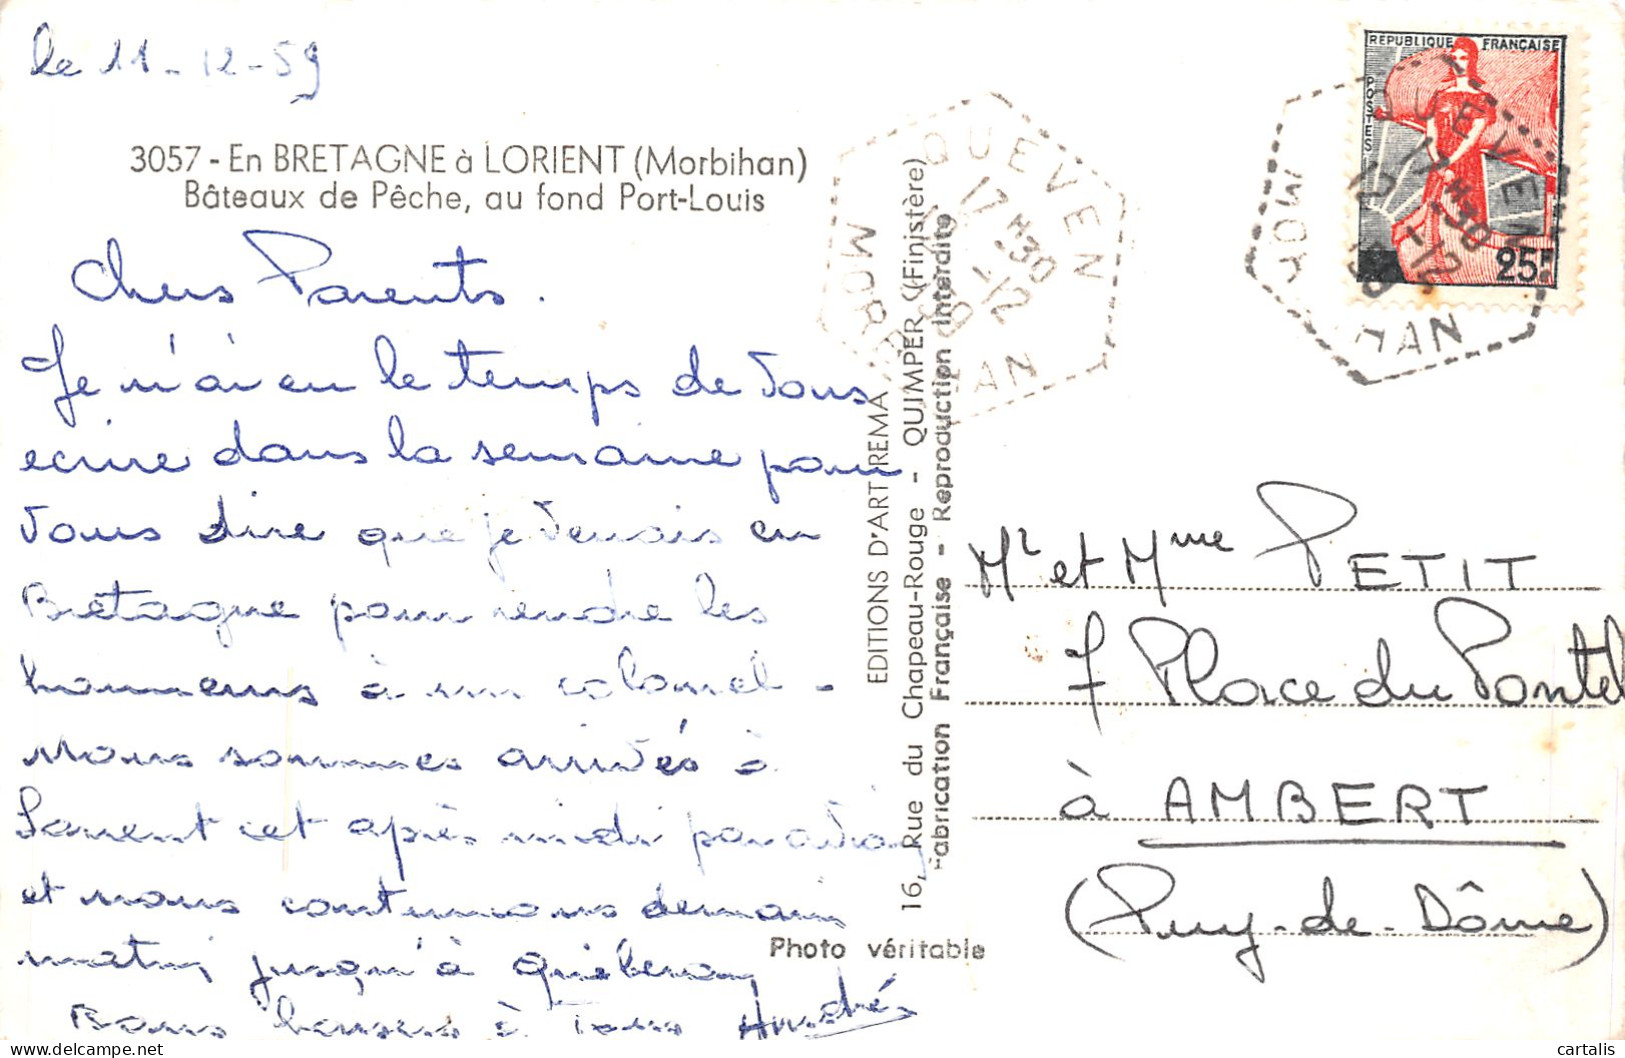 le 11-12-59
3057 - En BRETAGNE à LORIENT (Morbihan)
Bâteaux de Pêche, au fond Port-Louis
Chers Parents.
Je n'ai eu le temps de vous
ecrire dans la semaine pour
vous dire que je venais en
Bretagne pour rendre les
honneurs à un colonel -
Nous sommes arrivés à
Lorient cet après midi par avion
et nous continuons demain
matin jusqu'à Quiberon
Bons baisers à Tous André
EDITIONS D'ART REMA
16, Rue du Chapeau-Rouge - QUIMPER (Finistère)
Fabrication Française - Reproduction Interdite
Photo véritable
QUEVEN
17H30
12-12
MORBIHAN
REPUBLIQUE FRANÇAISE
POSTES
25F
QUEVEN
17H30
12-12
MORBIHAN
Mr et Mme PETIT
7 Place du Pontel
à AMBERT
(Puy-de-Dôme)
cartalis